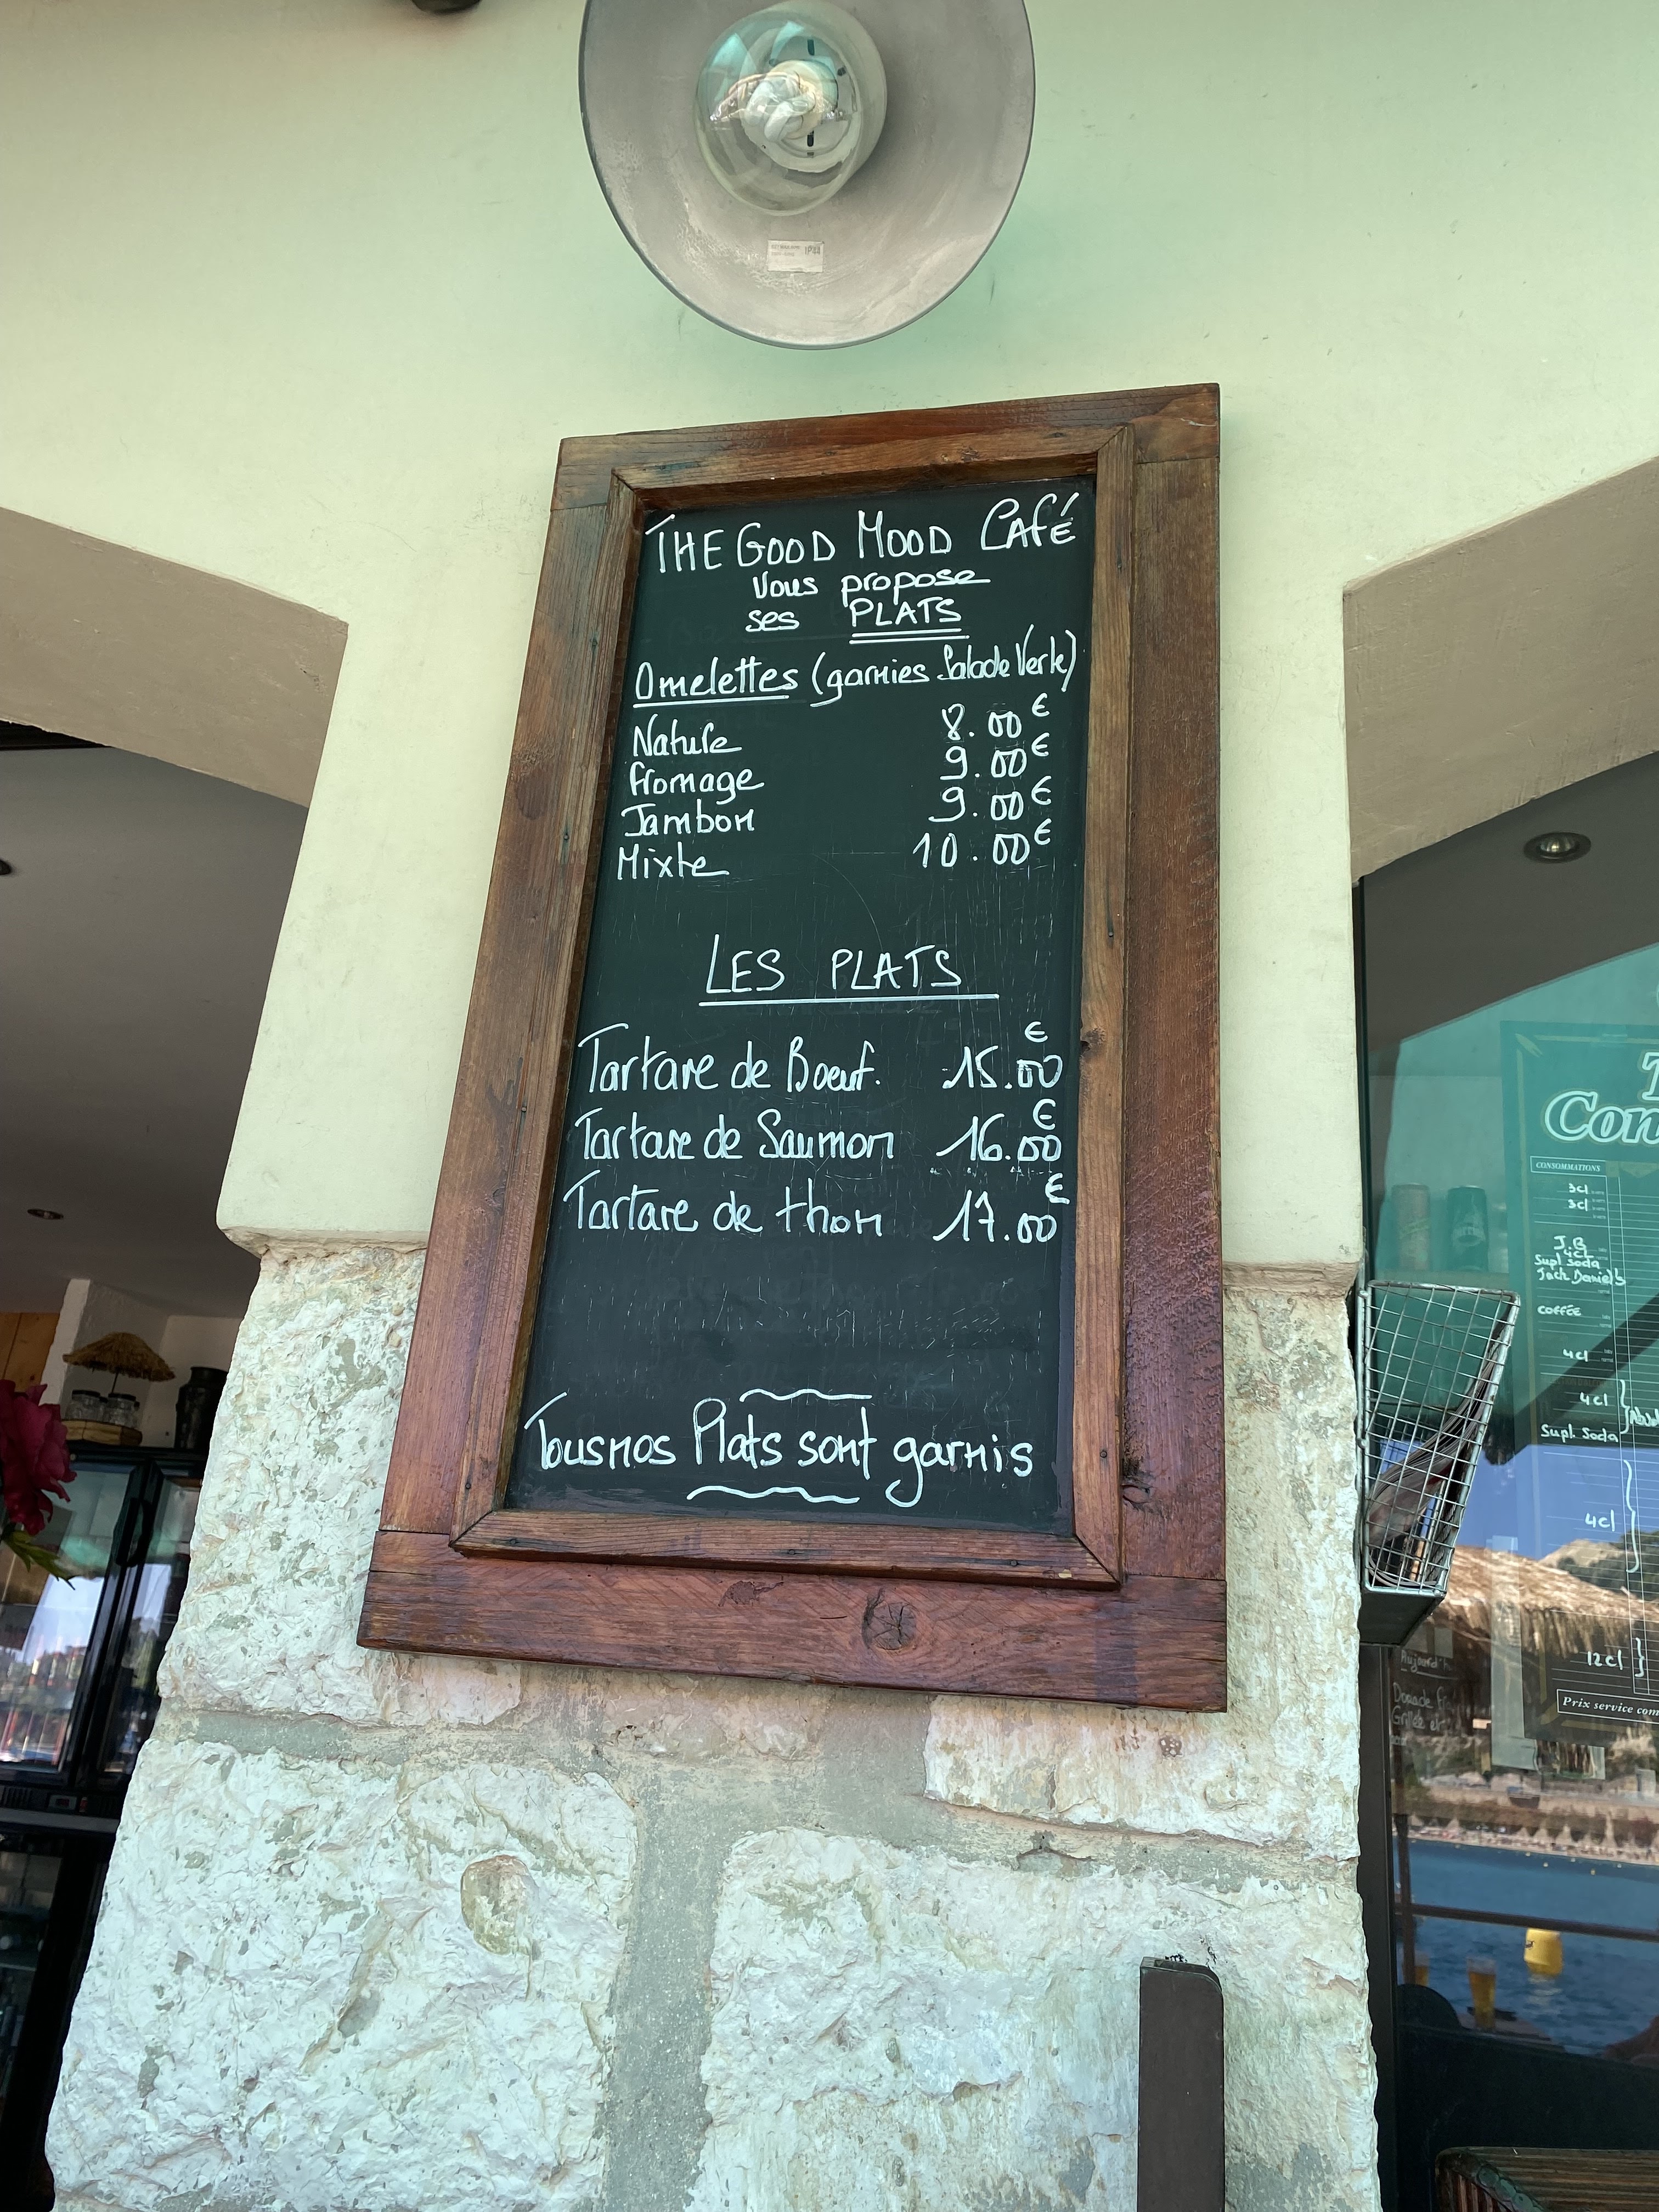 THE GOOD MOOD CAFÉ
Vous propose
ses PLATS
Omelettes (garnies Salade Verte)
Nature 8.00€
fromage 9.00€
Jambon 9.00€
Mixte 10.00€
LES PLATS
Tartare de Boeuf. 15.00€
Tartare de Saumon 16.00€
Tartare de thon 17.00€
Tous nos Plats sont garnis
IP44
CONSOMMATIONS
3cl
3cl
J.B
4cl
Supl soda
Jack Daniel's
COFFÉE
4cl
4cl
Supl. Soda
4cl
12cl
Prix service